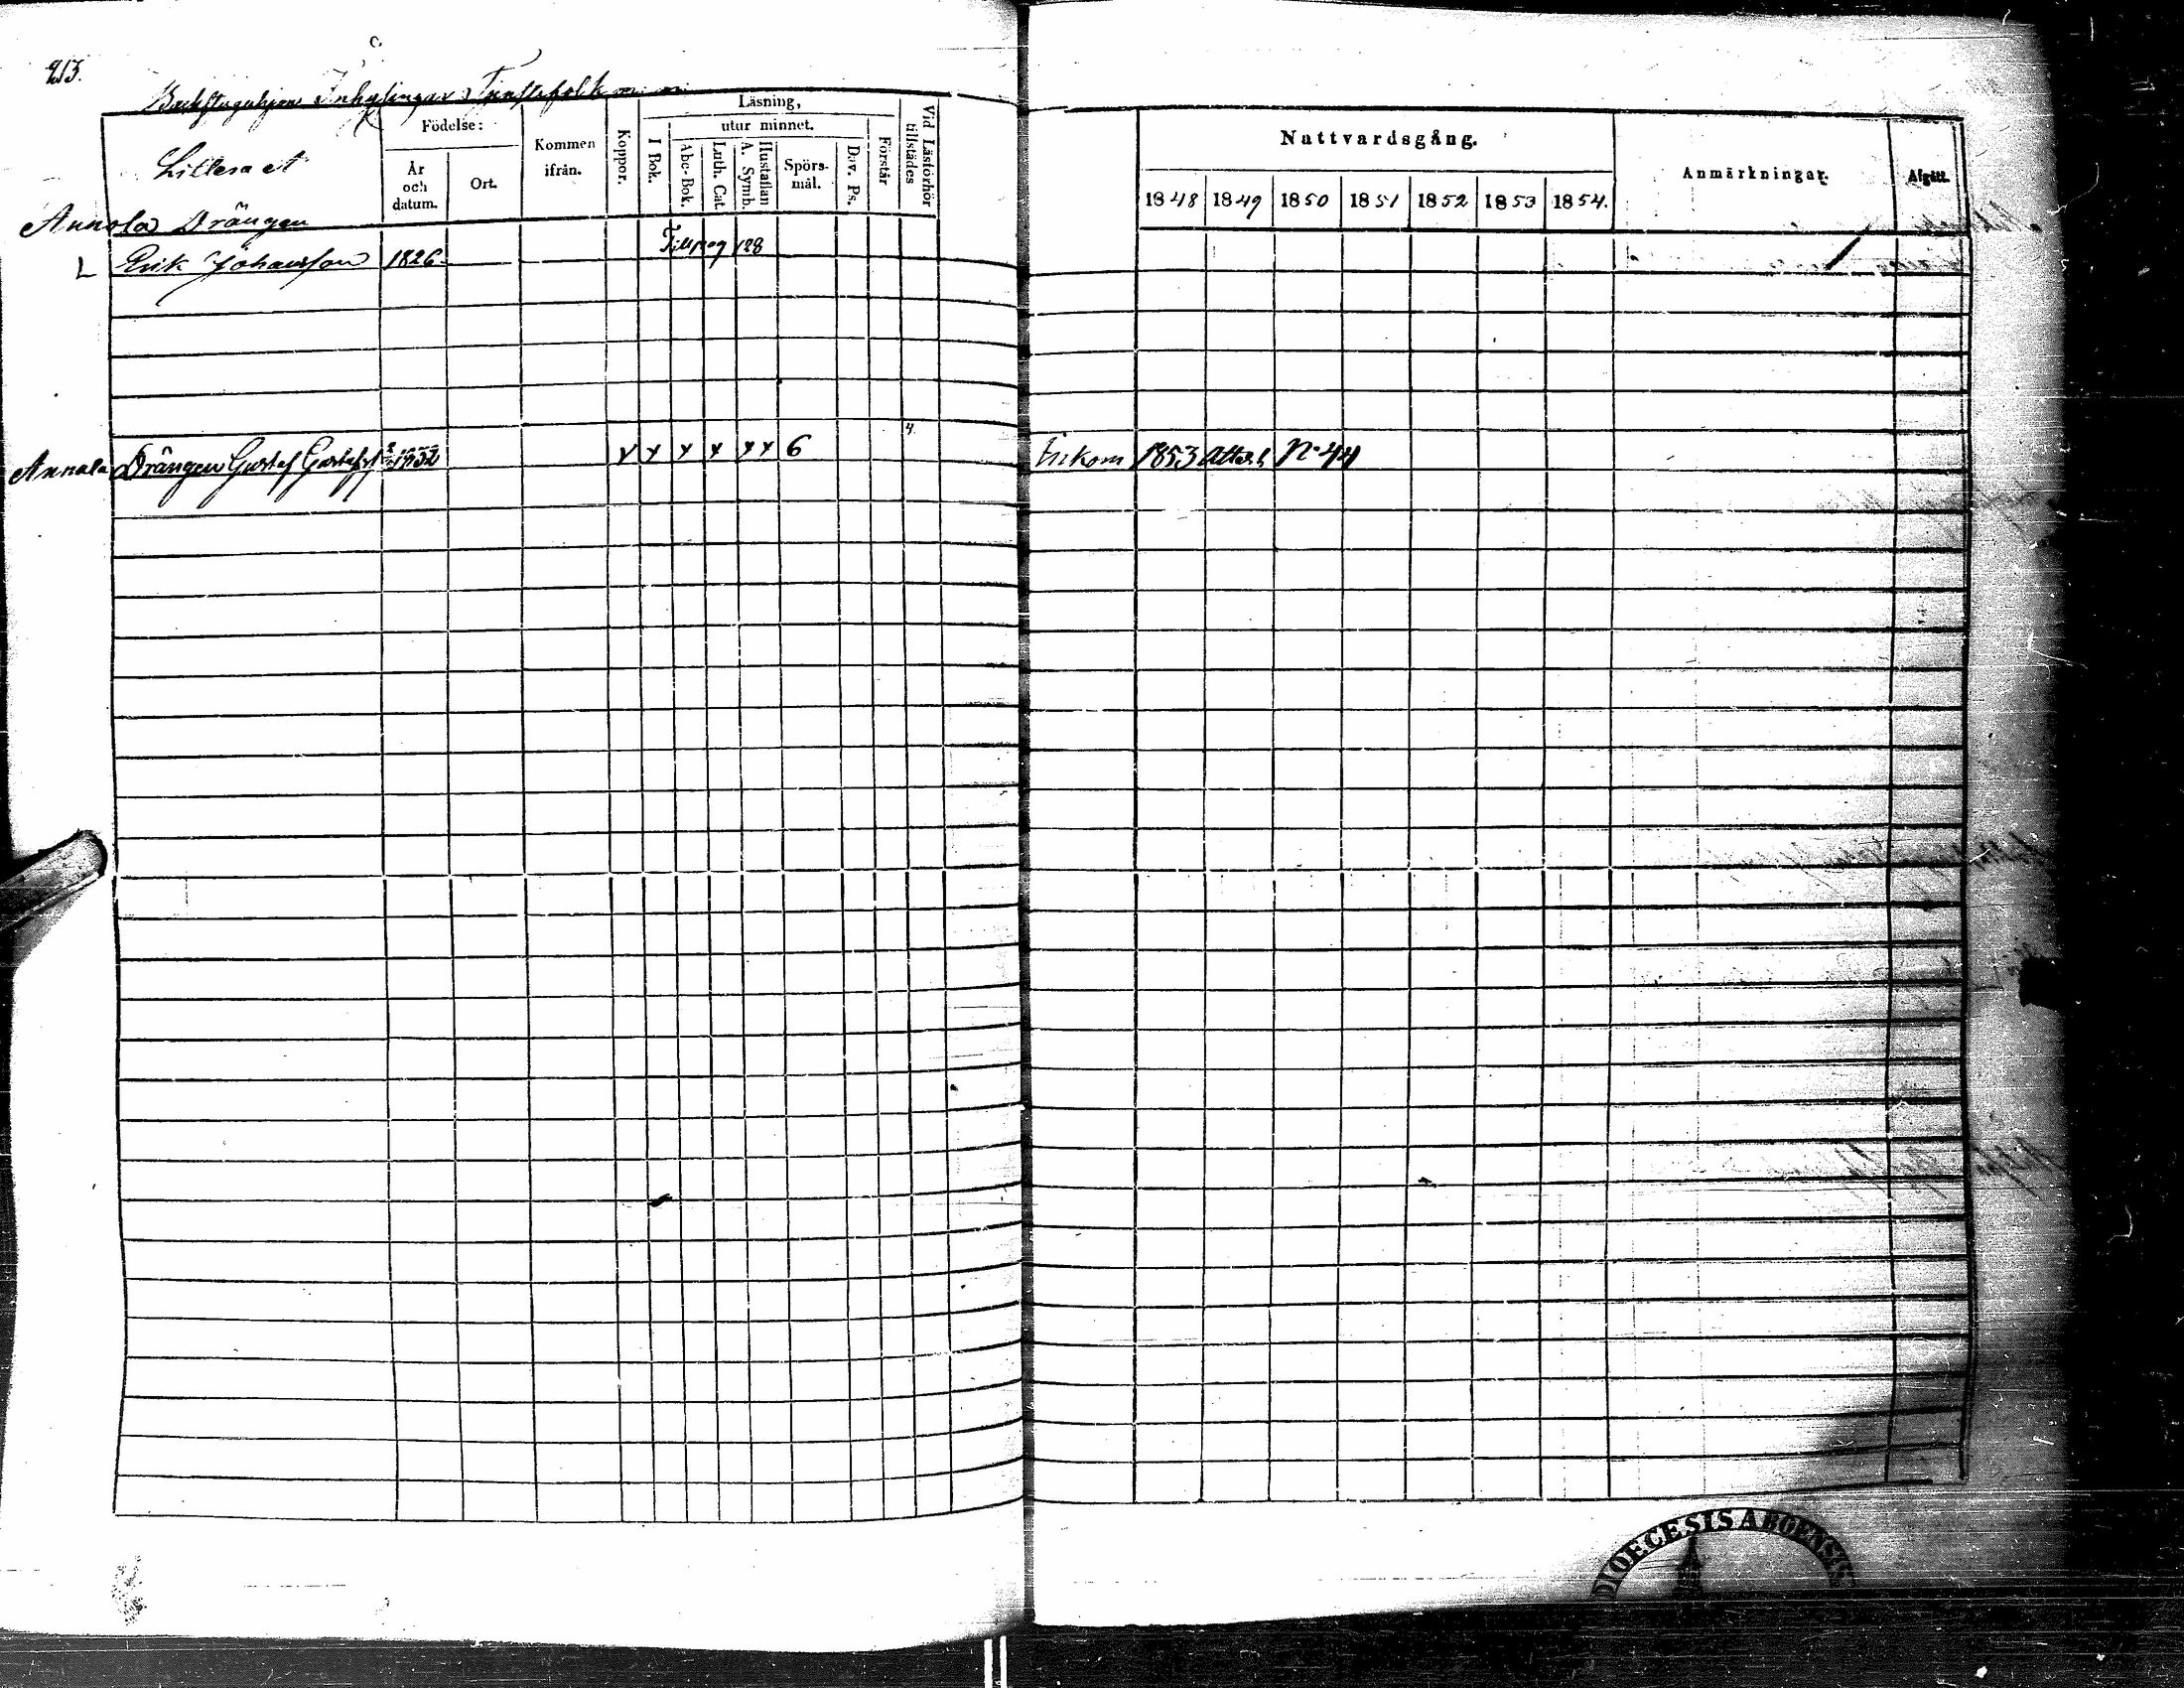 213.
Inhysingar Tjenstefolk m. m.
Födelse:
År och datum.
Ort.
Kommen ifrån.
Koppor.
Läsning,
I Bok.
utur minnet.
Abc-Bok.
Luth. Cat.
Hustaflan A. Symb.
Spörs-mål.
Dav. Ps.
Förstår
Vid Läsförhör tillstädes
Nattvardsgång.
1848 1849 1850 1851 1852 1853 1854.
Anmärkningar.
Afgått.
Annola Drängen
L Erik Johansson 1826 Till pag 128
Annala Drängen Gustaf Gustafss 1832 x x x x x x 6 4. Inkom 1853 Attest No 44
DIOECESIS ABOENSIS